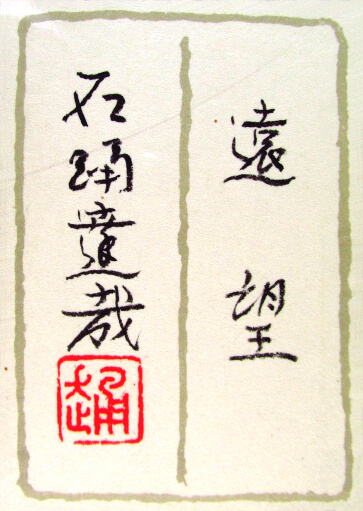 遠望
石踊達哉
踊